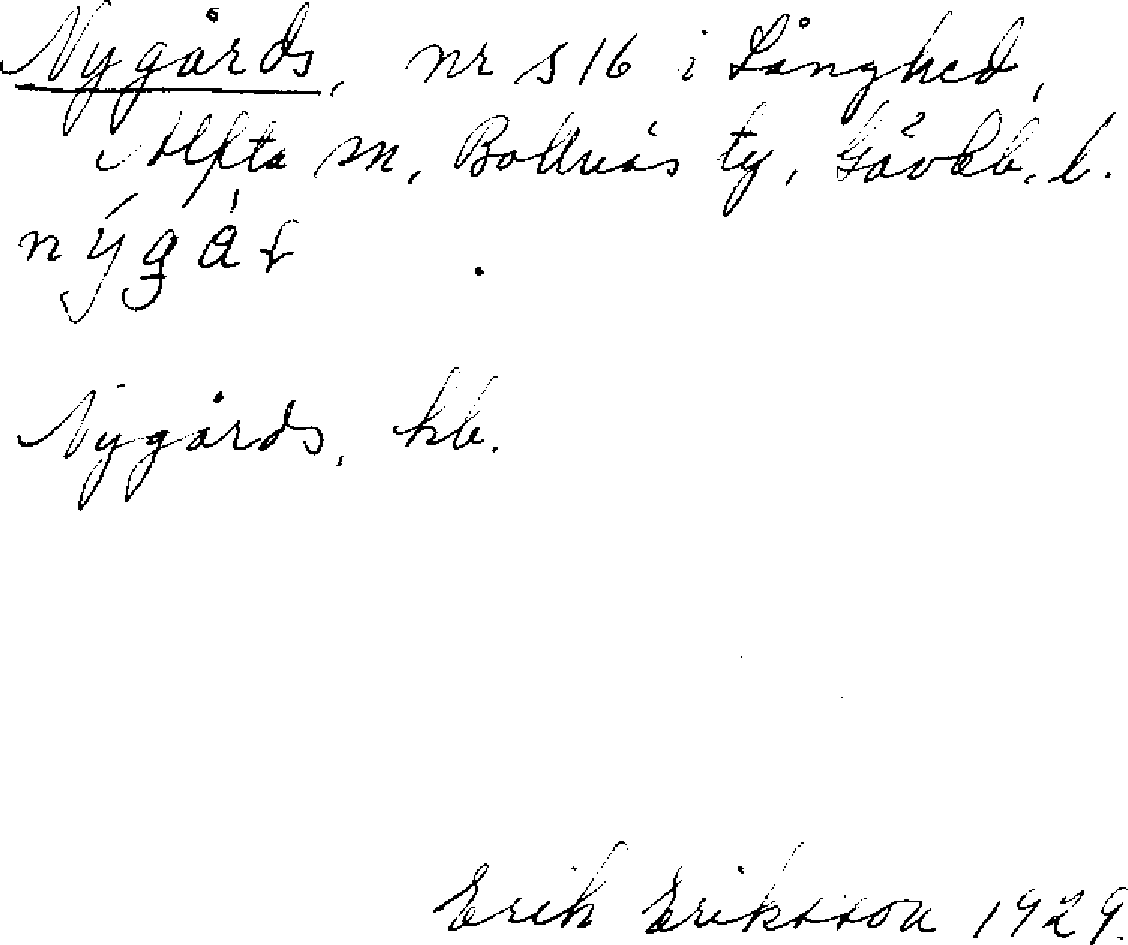 Nygårds, nr s 16 i Långhed,
Alfta sn, Bollnäs tg, Gävlb. l.
nýgár
Nygårds, kb.
Erik Eriksson 1929.